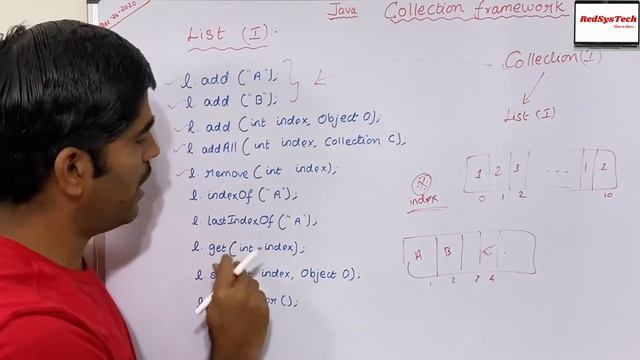 Dec-24-2020
Java Collection framework
RedSysTech
List (I):-
Collection(I)
List(I)
l. add ("A");
l. add ("B");
l. add (int index, Object O);
l. addAll (int index, Collection C);
l. remove (int index);
l. indexOf ("A");
l. lastIndexOf ("A");
l. get (int index);
index, Object O);
();
index
1 2 3 ... 1 2
0 1 2 10
A B
1 2 3 4